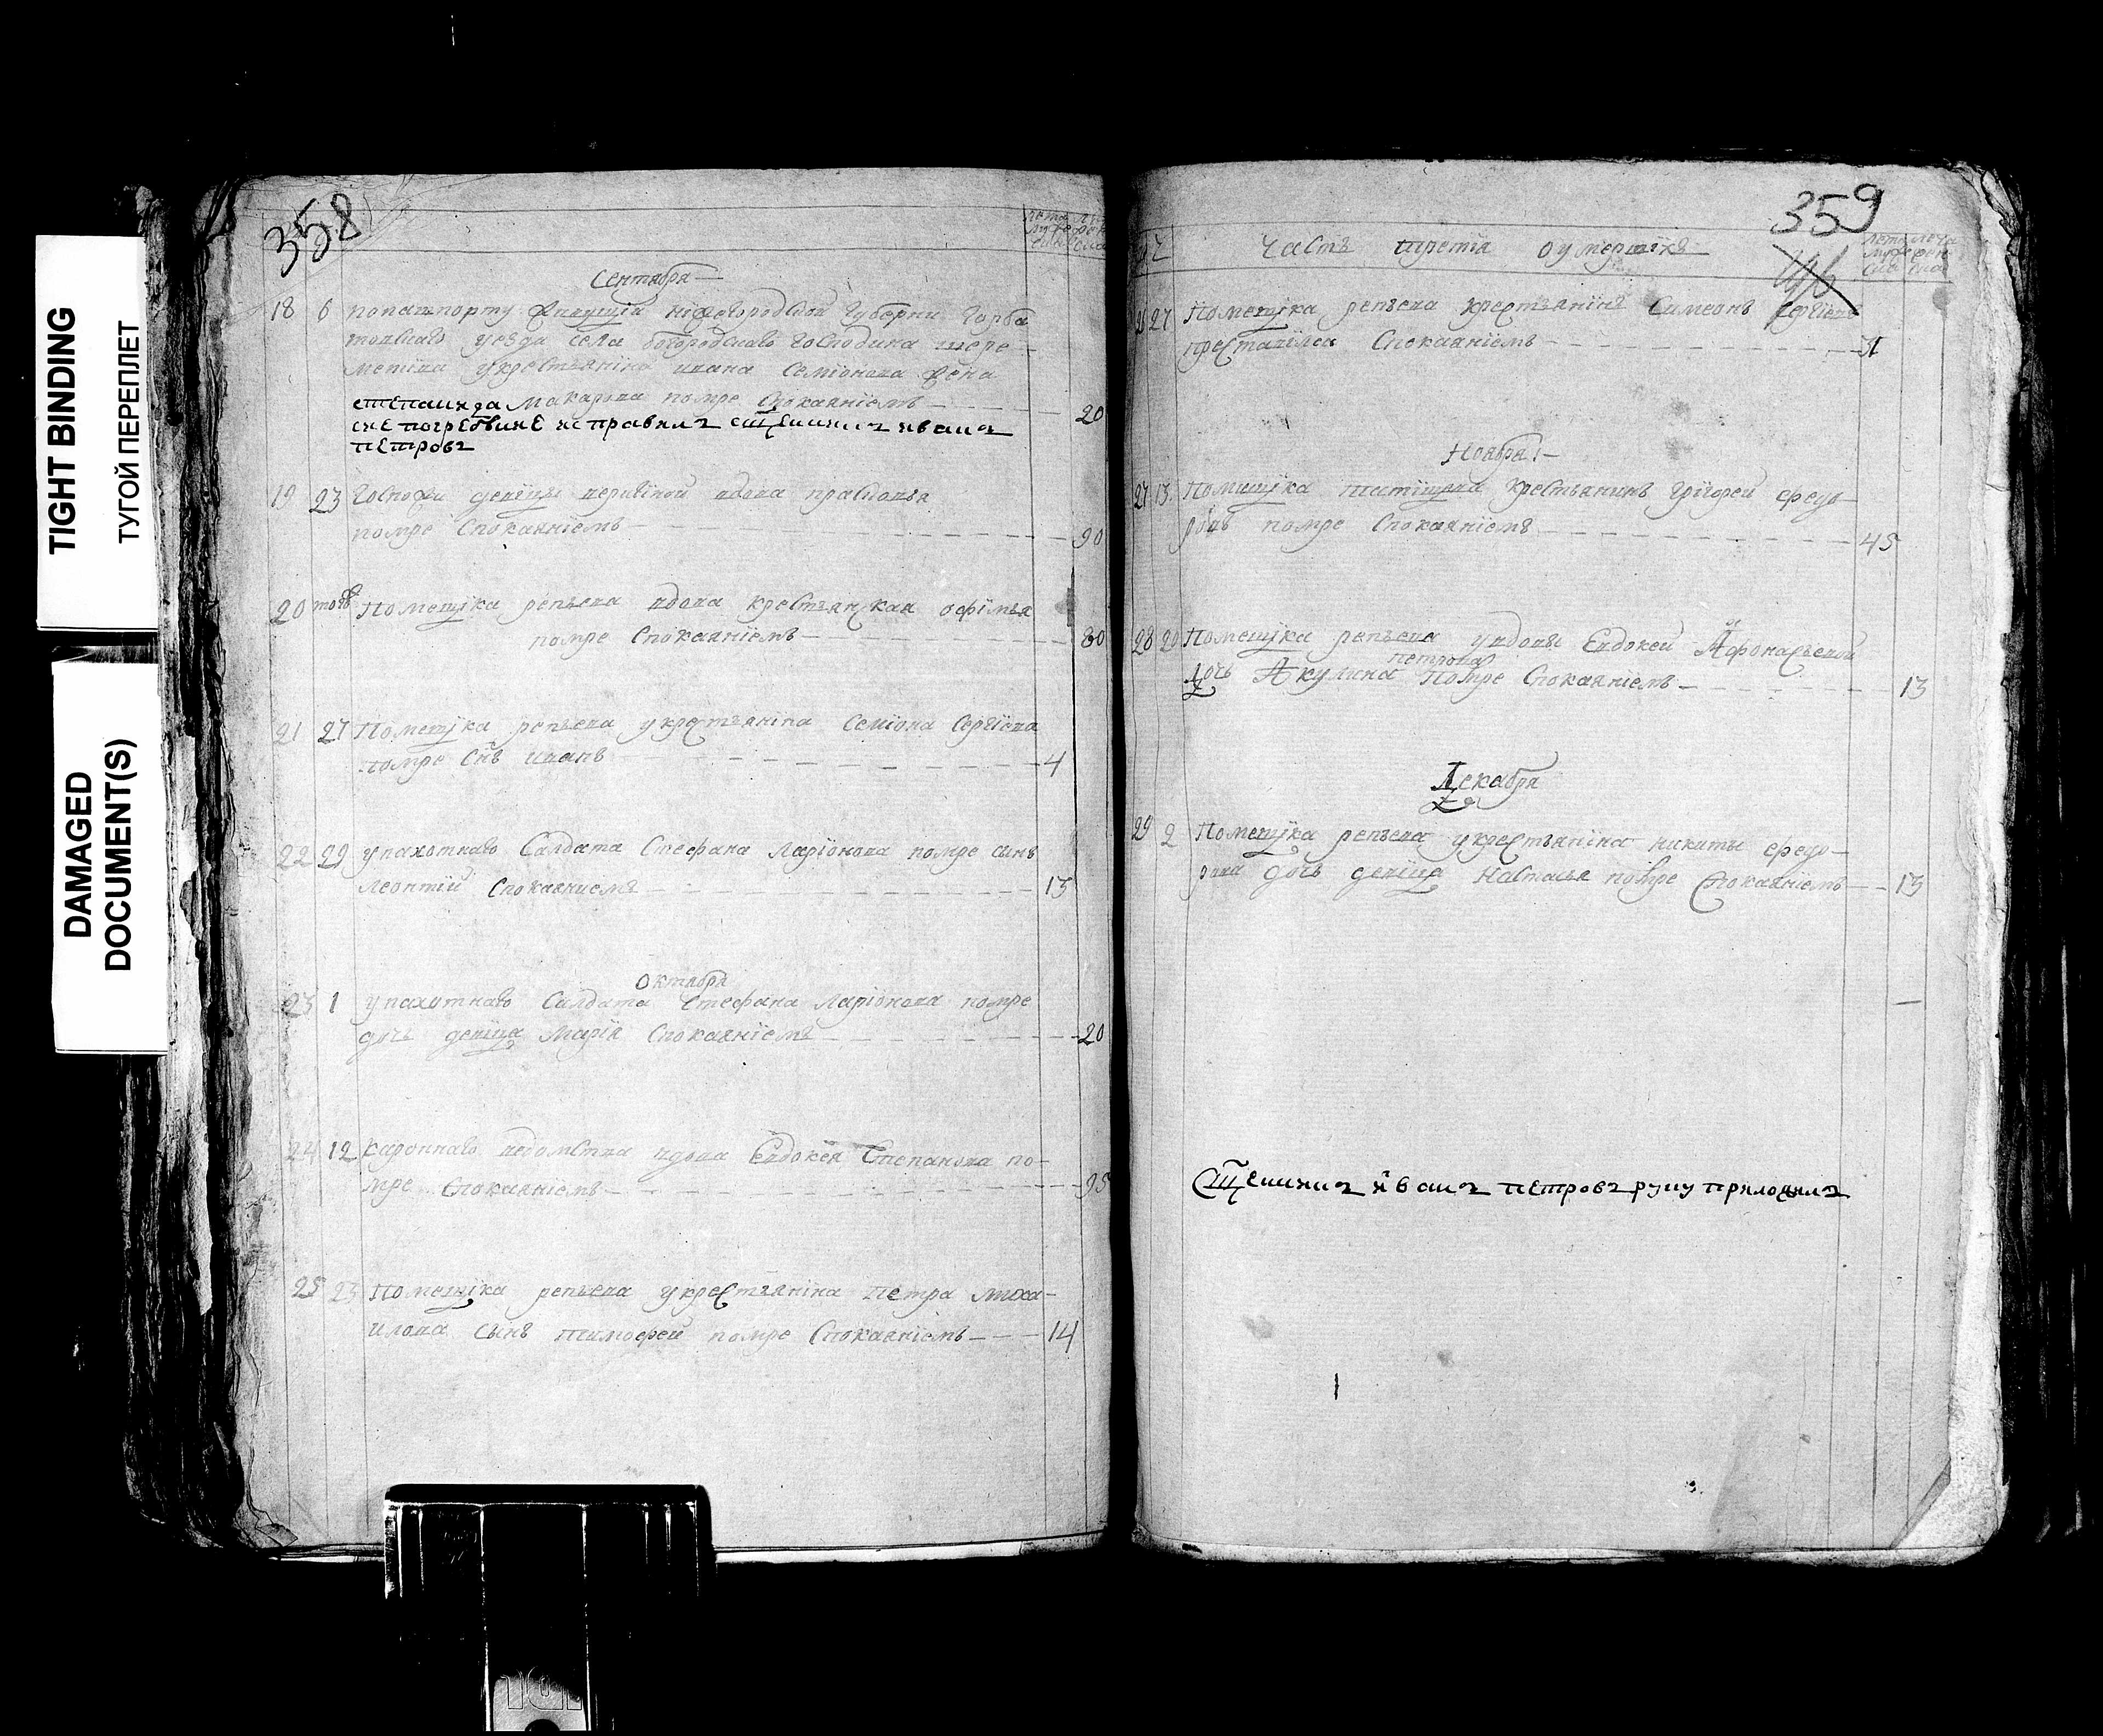 TIGHT BINDING
ТУГОЙ ПЕРЕПЛЕТ
DAMAGED
DOCUMENT(S)
358
лета
Сентября
18 6 попашпорту живущїй нїжегородской губернїи горба
товскаго уезда села богородскаго господина шере
метива укрестьянїна ивана Семїонова жена
степанида макарова помре Спокаянїемъ 20
сие погребение исправилъ сщенникъ иванъ
петровъ
19 23 Госпожи девїцы вдова прасковья
помре Спокаянїемъ 90
20 тогож Помещїка репьева вдова крестьянская офїмья
помре Спокаянїемъ 80
21 27 Помещїка репьева укрестьянїна Семїона Сергїева
помре Снъ иванъ 4
22 29 упахотнаго Салдата Стефана Ларїонова помре сынъ
Леонтїй Спокаяниемъ 13
Октября
23 1 упахотнаго Салдата Стефана Ларїонова помре
дочь девїца Марїя Спокаянїемъ 20
24 12 кароннаго ведомства вдова Евдокея Степанова по-
мре Спокаянїемъ 95
25 23 Помещїка репьева укрестьянїна Петра Миха-
илова сынъ тимофей помре Спокаянїемъ 14
359
Часть третїя оумершїхъ
26 27 Помещїка репьева крестьянїнъ Симеонъ Сергїевъ
преставился Спокаянїемъ 31
Ноября
27 13 Помищїка татїщева крестьянинъ Григорей федо-
ровъ помре Спокаянїемъ 45
28 20 Помещїка репьева увдовы Евдокеи Афонасьевой
дочь Акулина петрова помре Спокаянїемъ 13
Декабря
29 2 Помещїка репьева укрестьянїна никиты федо-
рова дочь девїца Настасья помре Спокаянїемъ 13
Сщенникъ иванъ петровъ руку приложилъ